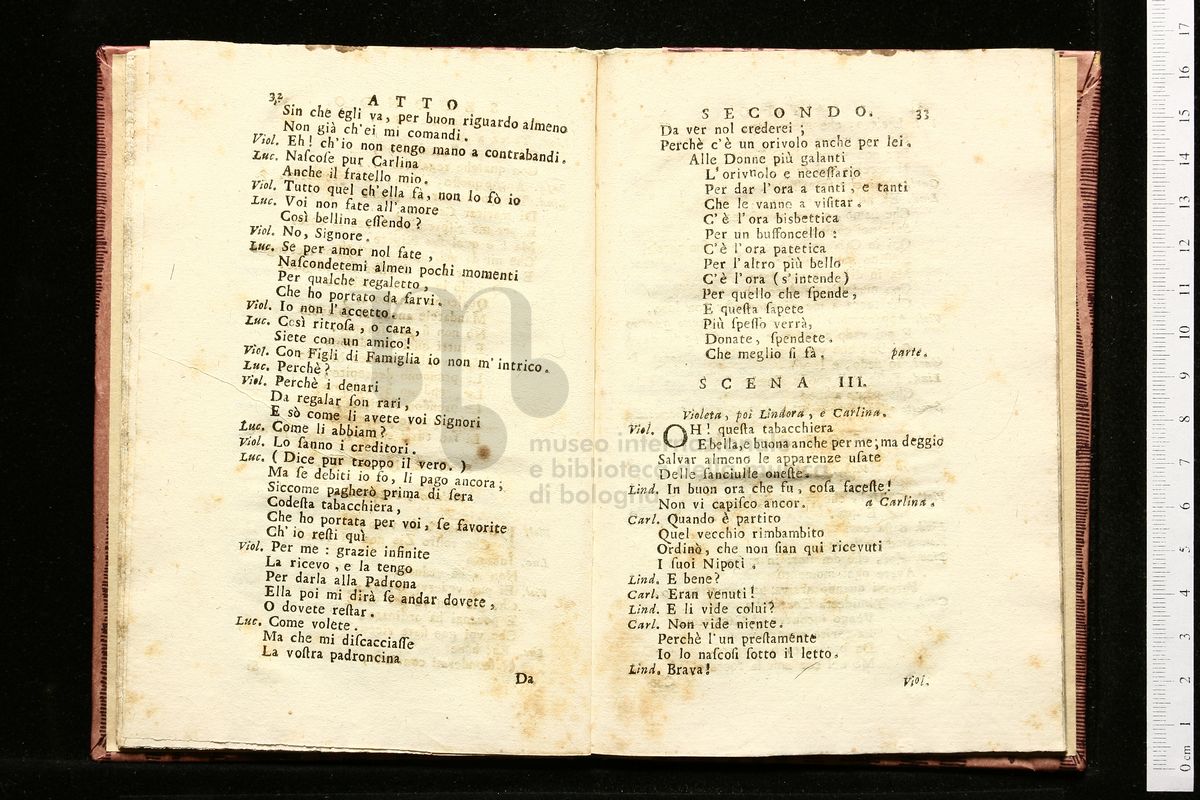 32
A T T O
Sin che egli va, per buon riguardo almeno
Non già ch'ei mi comandi.
Viol. Eh! ch'io non tengo mano a contrabandi.
Luc. Naſcoſe pur Carlina
Anche il fratello mio.
Viol. Tutto quel ch'ella fà, non lo sò io
Luc. Voi non fate all'amore
Così bellina eſſendo?
Viol. No, Signore.
Luc. Se per amor nol fate,
Naſcondetemi almen pochi momenti
Per qualche regaletto,
Che ho portato da farvi.
Viol. Io non l'accetto.
Luc. Così ritroſa, o cara,
Siete con un amico!
Viol. Con Figli di Famiglia io non m'intrico.
Luc. Perchè?
Viol. Perchè i denari
Da regalar ſon rari,
E sò come li avete voi Signori
Luc. Come li abbiam?
Viol. Lo ſanno i creditori.
Luc. (Dice pur troppo il vero.)
Ma ſe debiti io fo, li pago ancora;
Siccome pagherò prima di ſera
Codeſta tabacchiera,
Che ho portata per voi, ſe favorite
Ch'io reſti quì
Viol. Per me: grazie infinite
La ricevo, e la tengo
Per darla alla Padrona
Ella poi mi dirà ſe andar dovete,
O dovete reſtar.
Luc. Come volete.
Ma che mi diſcacciaſſe
La voſtra padroncina
Da
S E C O N D O.
33
Da ver nol crederei;
Perchè c'è un orivolo anche per lei.
Alle Donne più galanti
L'orivuolo e neceſſario
Per dar l'ora a tanti, e tanti
Che le vanno a viſitar.
C'è l'ora bisbettica
Per un buffoncello:
C'è l'ora patetica
Per l'altro più bello
C'è l'ora (s'intende)
Per quello che ſpende,
E queſta ſapete
Più ſpeſſo verrà,
Donate, ſpendete.
Che meglio ſi fà. parte.
S C E N A III.
Violeta, poi Lindora, e Carlina.
Viol. OH! queſta tabacchiera
E bella, e buona anche per me; ma deggio
Salvar almeno le apparenze uſate
Delle fanciulle oneſte.
Lind. In buon ora che fu, coſa faceſte!
Non vi capiſco ancor. a Carlina.
Carl. Quando è partito
Quel vecchio rimbambito
Ordinò, che non ſian qui ricevuti
I ſuoi Nipoti.
Lind. E bene?
Carl. Eran venuti!
Lind. E li vide colui?
Carl. Non vide niente.
Perchè l'un preſtamente
Io lo naſcoſi ſotto il letto.
Lind. Brava!
Viol.
museo
e biblioteca
di bologna
0 cm 1 2 3 4 5 6 7 8 9 10 11 12 13 14 15 16 17